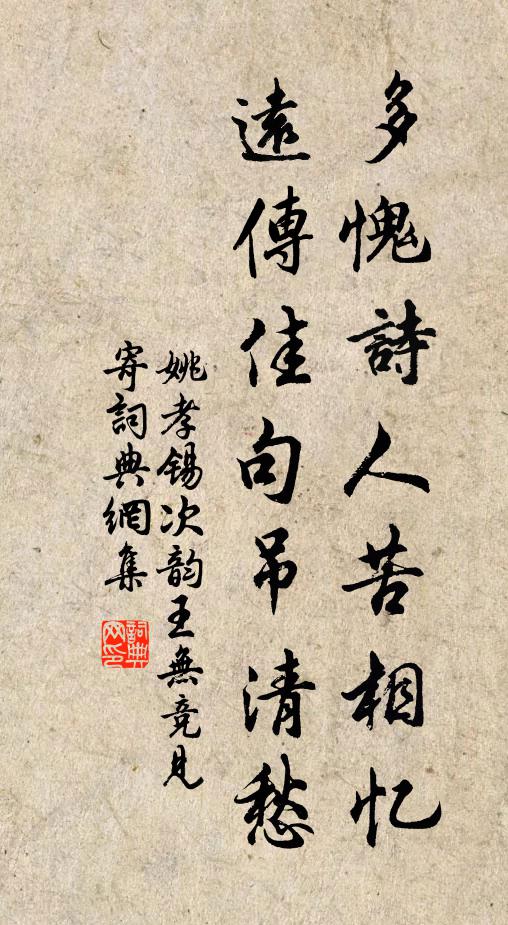 多愧詩人苦相忆
遠傳佳句吊清愁
姚孝锡次韵王無竞見
寄詞典網集
詞典
网印